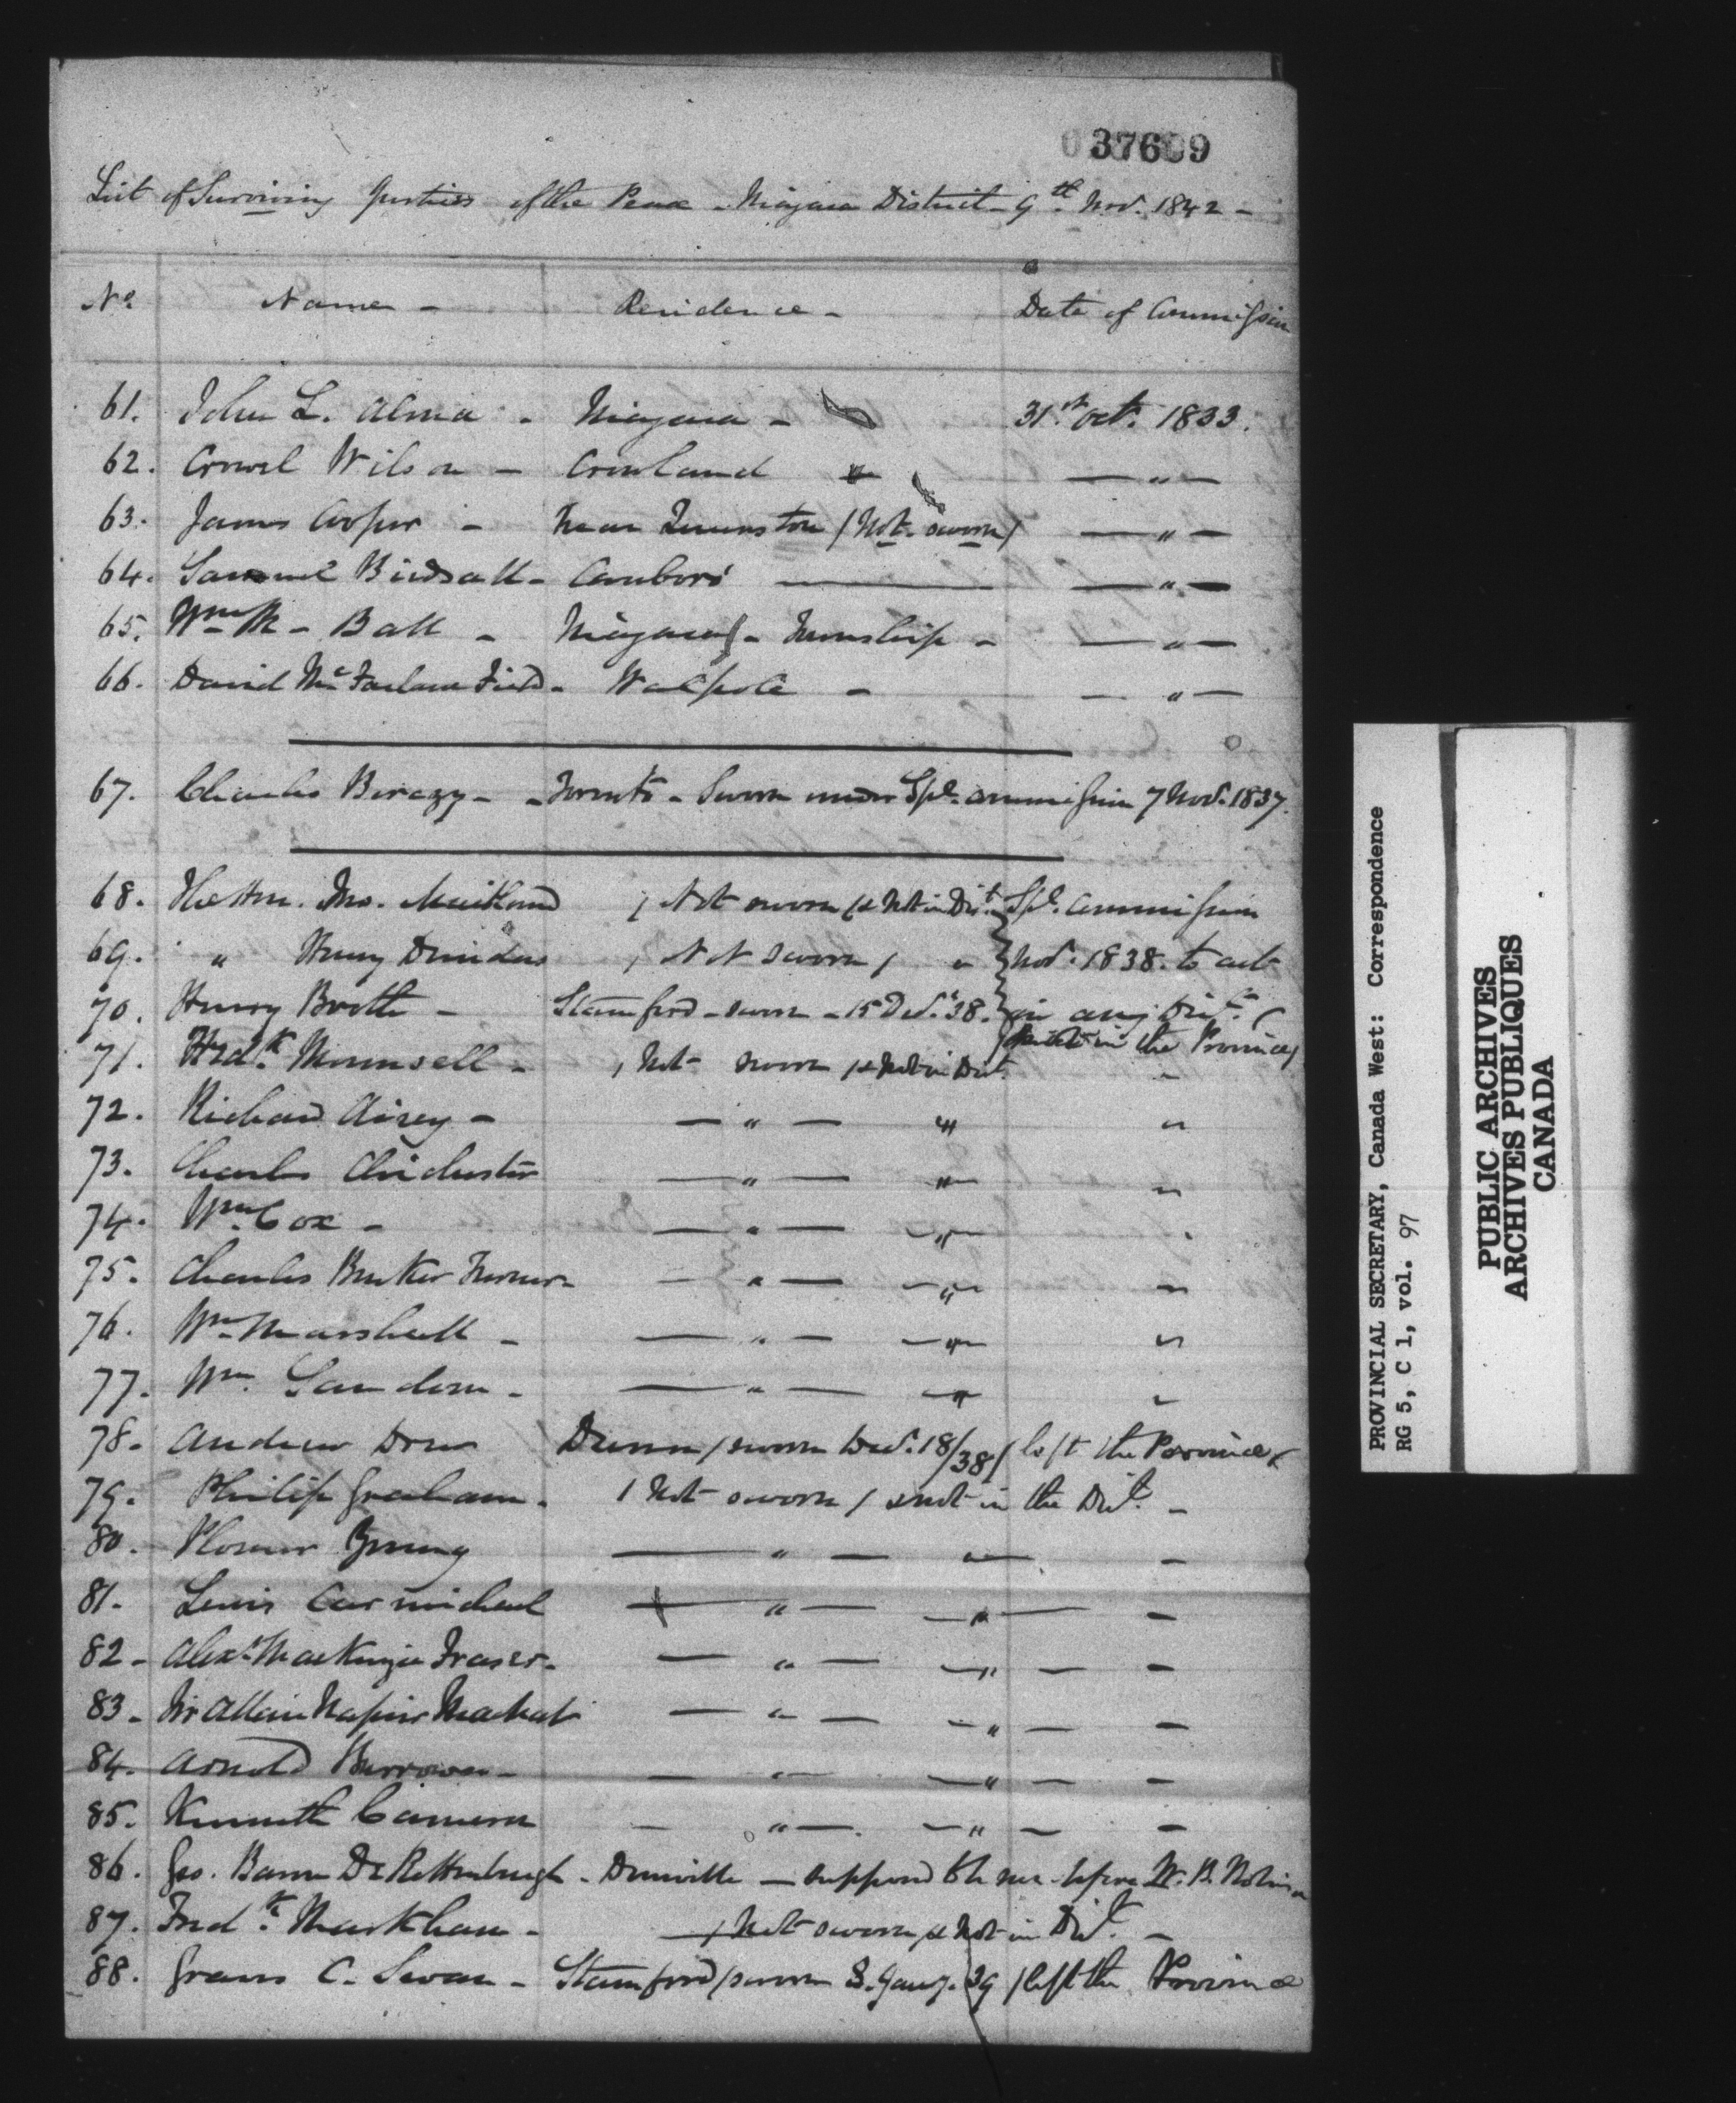 037609
List of Surviving Justices of the Peace - Niagara District - 9th Nov. 1842 -
No. Names - Residence - Date of Commission
61. John L. Alma - Niagara - 31st Oct. 1833.
62. Crowel Wilson - Crowland — " —
63. James Cooper - near Queenston / Not sworn / — " —
64. Samuel Birdsall - Canboro' — — " —
65. Wm M - Ball - Niagara - Township - — " —
66. David McFarland Field - Walpole - — " —
67. Charles Berczy - - Toronto - Sworn under Spl. Commission 7 Nov. 1837.
68. The Hon. Jno. Maitland / Not sworn / & Not in Dist. Spl. Commission
69. " Henry Dundas / Not sworn / " Nov. 1838. to act
70. Henry Booth - Stamford - sworn - 15 Dec. '38. in any Dist. (
71. Fredk. Mounsell - / Not sworn / & Not in Dist. in the Province /
72. Richard Airey - — " — " "
73. Charles Chichester — " — " "
74. Wm. Cox - — " — " "
75. Charles Barker Turner - — " — " "
76. Wm Marshall - — " — " "
77. Wm. Sandom - — " — " "
78. Andrew Drew Dunn / sworn Dec. 18/38 / left the Province
79. Philip Graham - / Not sworn / & not in the Dist. -
80. Plomer Young — " — " — -
81. Lewis Carmichael — " — " — -
82 - Alexr. MacKenzie Fraser - — " — " — -
83 - Sir Allan Napier MacNab — " — " — -
84. Arnold Burrowes - — " — " — -
85. Kenneth Cameron — " — " — -
86. Geo. Baron De Rottenburgh - Dunnville — supposed to be sworn before W. B. Robinson
87. Fredk. Markham - / Not sworn / & Not in Dist. -
88. Graves C. Swan - Stamford / sworn 3. Jany. 39 / left the Province
PROVINCIAL SECRETARY, Canada West: Correspondence
RG 5, C 1, vol. 97
PUBLIC ARCHIVES
ARCHIVES PUBLIQUES
CANADA